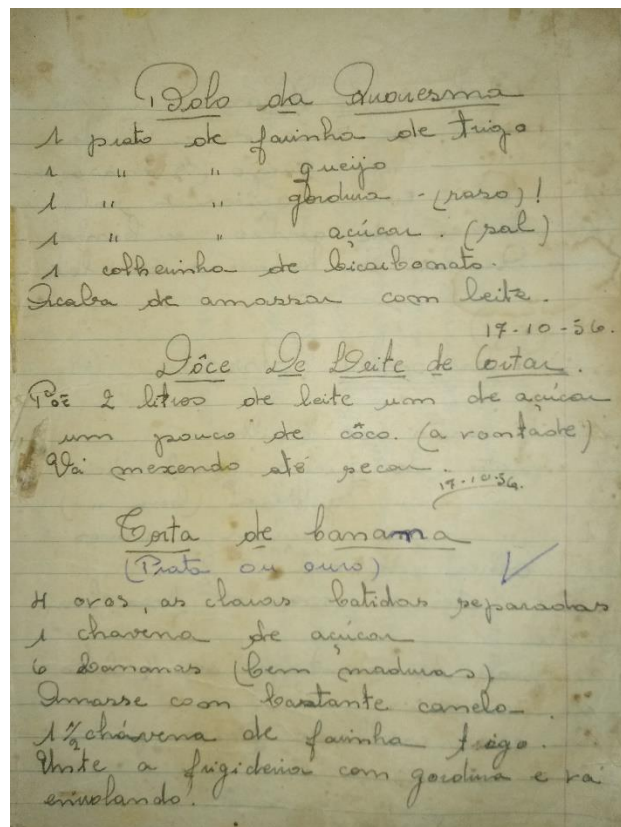 Bolo da Quaresma
1 prato de farinha de trigo
1 " " queijo
1 " " gordura - (raso)!
1 " " açúcar. (sal)
1 colherinha de bicarbonato.
Acaba de amassar com leite.
17-10-56.
Dôce De Leite de Cortar.
Põe 2 litros de leite um de açúcar
um pouco de côco. (a vontade)
Vá mexendo até secar.
17-10-56.
Torta de banana
(Prata ou ouro)
4 ovos, as claras batidas separadas
1 chavena de açúcar
6 bananas (bem maduras)
Amasse com bastante canela
1 1/2 chávena de farinha trigo.
Unte a frigideira com gordura e vá
enrolando.